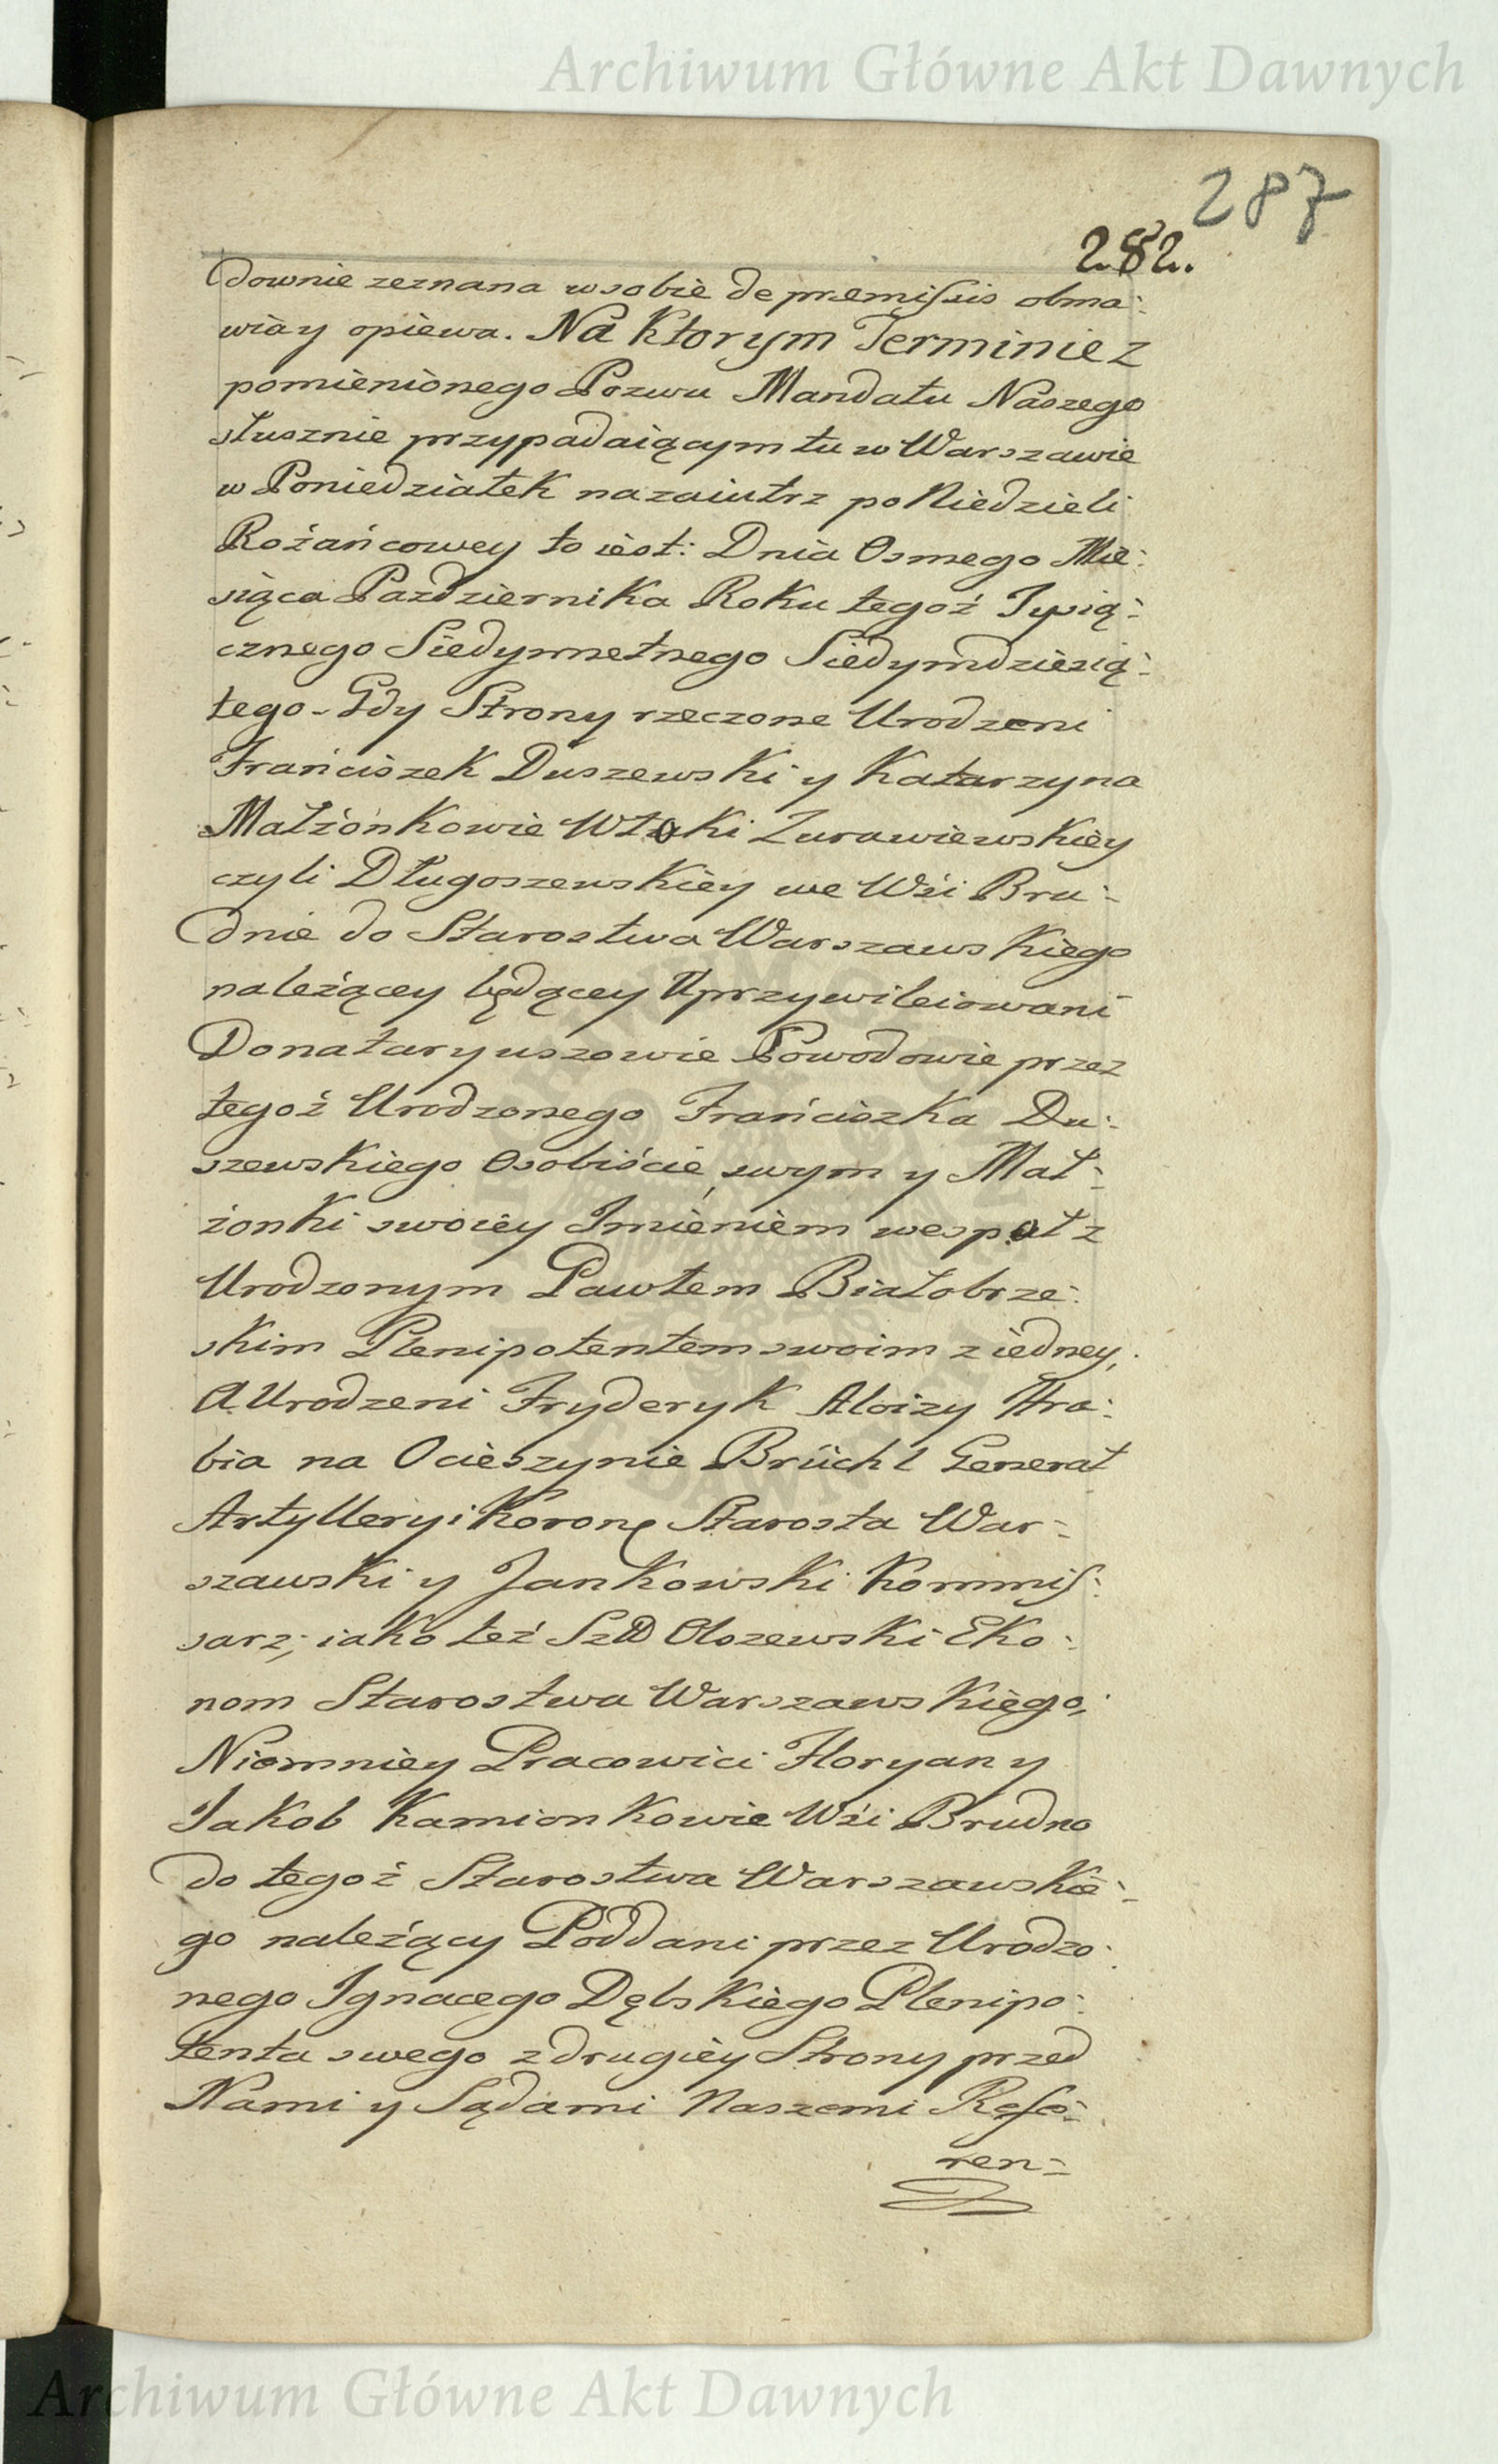 Archiwum Główne Akt Dawnych
287
282.
downie zeznana w sobie de præmissis obma:
wia y opiewa. Na Ktorym Terminie z
pomienionego Pozwu Mandatu Naszego
słusznie przypadaiącym tu w Warszawie
w Poniedziałek nazaiutrz po Niedzieli
Rożańcowey to iest: Dnia Osmego Mie:
siąca Pazdziernika Roku tegoż Tysią:
cznego Siedymsetnego Siedymdziesią:
tego. Gdy Strony rzeczone Urodzeni
Franciszek Duszewski y Katarzyna
Małżonkowie Włoki Zurawiewskiey
czyli Długoszewskiey we Wsi Bru:
dnie do Starostwa Warszawskiego
należącey będącey Uprzywileiowani
Donataryuszowie Powodowie przez
tegoż Urodzonego Franciszka Du:
szewskiego Osobiście, swym y Mał:
żonki swoiey Imieniem wespoł z
Urodzonym Pawłem Białobrze:
skim Plenipotentem swoim z iedney;
A Urodzeni Fryderyk Aloizy Hra:
bia na Ocieszynie Brüchl Generał
Artylleryi Koronę Starosta War:
szawski y Jankowski Kommis:
sarz; iako też Szl Olszewski Eko:
nom Starostwa Warszawskiego,
Niemniey Pracowici Floryan y
Jakob Kamionkowie Wsi Brudno
do tegoż Starostwa Warszawskie:
go należący Poddani przez Urodzo:
nego Ignacego Dębskiego Plenipo:
tenta swego z drugiey Strony przed
Nami y Sądami Naszemi Refe:
ren:
Archiwum Główne Akt Dawnych